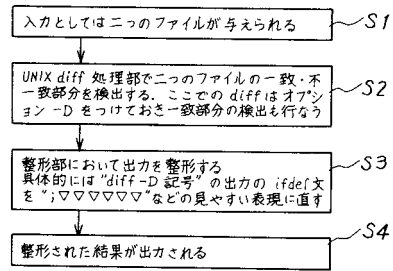 入力としては二つのファイルが与えられる
S1
UNIX diff 処理部で二つのファイルの一致・不
一致部分を検出する．ここでの diff はオプシ
ョン -D をつけておき一致部分の検出も行なう
S2
整形部において出力を整形する
具体的には "diff -D 記号" の出力の ifdef文
を ";▽▽▽▽▽▽" などの見やすい表現に直す
S3
整形された結果が出力される
S4